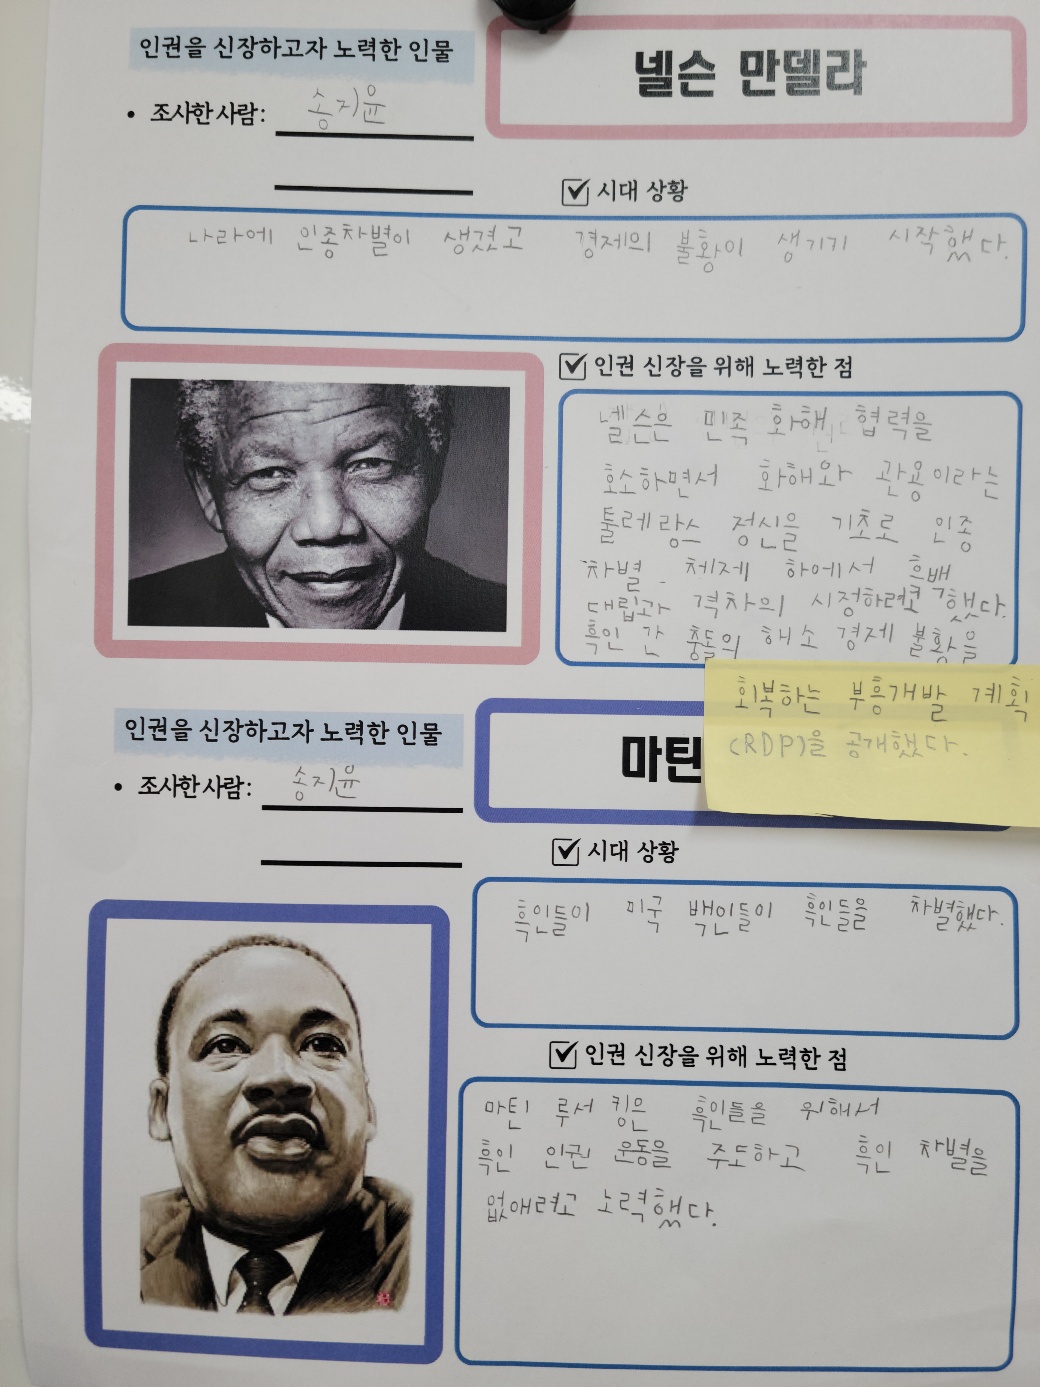 인권을 신장하고자 노력한 인물
넬슨 만델라
• 조사한 사람 : 송지윤
시대 상황
나라에 인종차별이 생겼고 경제의 불황이 생기기 시작했다.
인권 신장을 위해 노력한 점
넬슨은 민족 화해, 협력을
호소하면서 화해와 관용이라는
톨레랑스 정신을 기초로 인종
차별 체제 하에서 흑백
대립과 격차의 시정하려고 했다.
흑인 간 충돌의 해소 경제 불황을
회복하는 부흥개발 계획
(RDP)을 공개했다.
인권을 신장하고자 노력한 인물
마틴
• 조사한 사람 : 송지윤
시대 상황
흑인들이 미국 백인들이 흑인들을 차별했다.
인권 신장을 위해 노력한 점
마틴 루서 킹은 흑인들을 위해서
흑인 인권 운동을 주도하고 흑인 차별을
없애려고 노력했다.